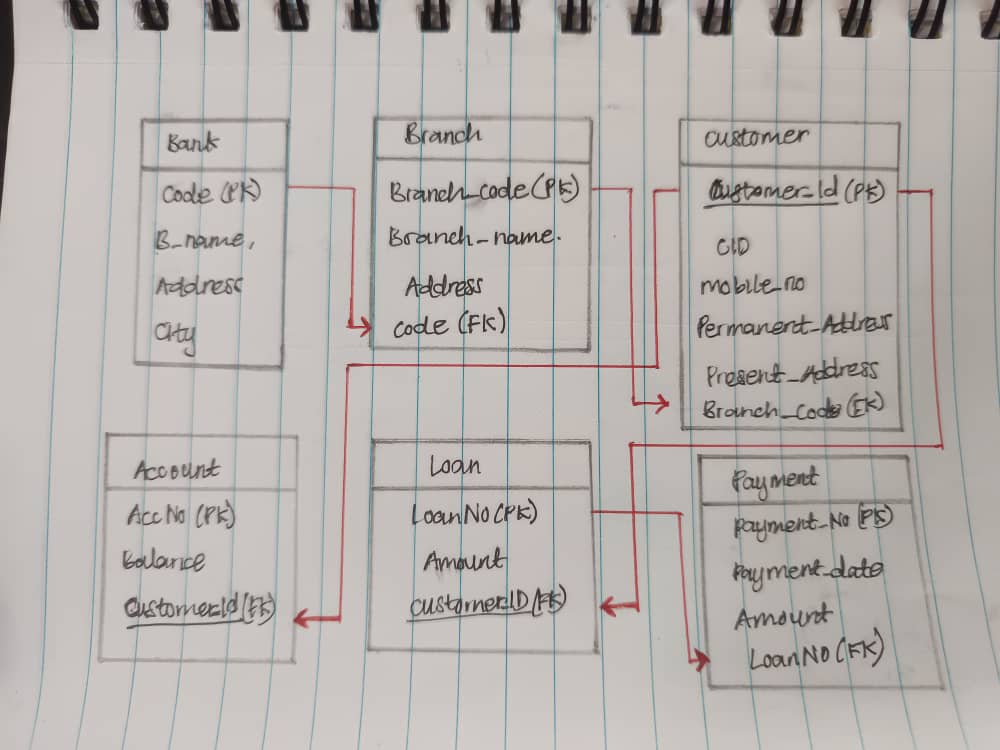 Bank
Code (PK)
B_name,
Address
City
Branch
Branch_code (PK)
Branch_name.
Address
code (FK)
Customer
Customer_Id (PK)
CID
mobile_no
Permanent_Address
Present_Address
Branch_Code (FK)
Account
Acc No (PK)
Balance
Customer_Id (FK)
Loan
Loan No (PK)
Amount
Customer_ID (FK)
Payment
Payment_No (PK)
Payment_date
Amount
Loan No (FK)